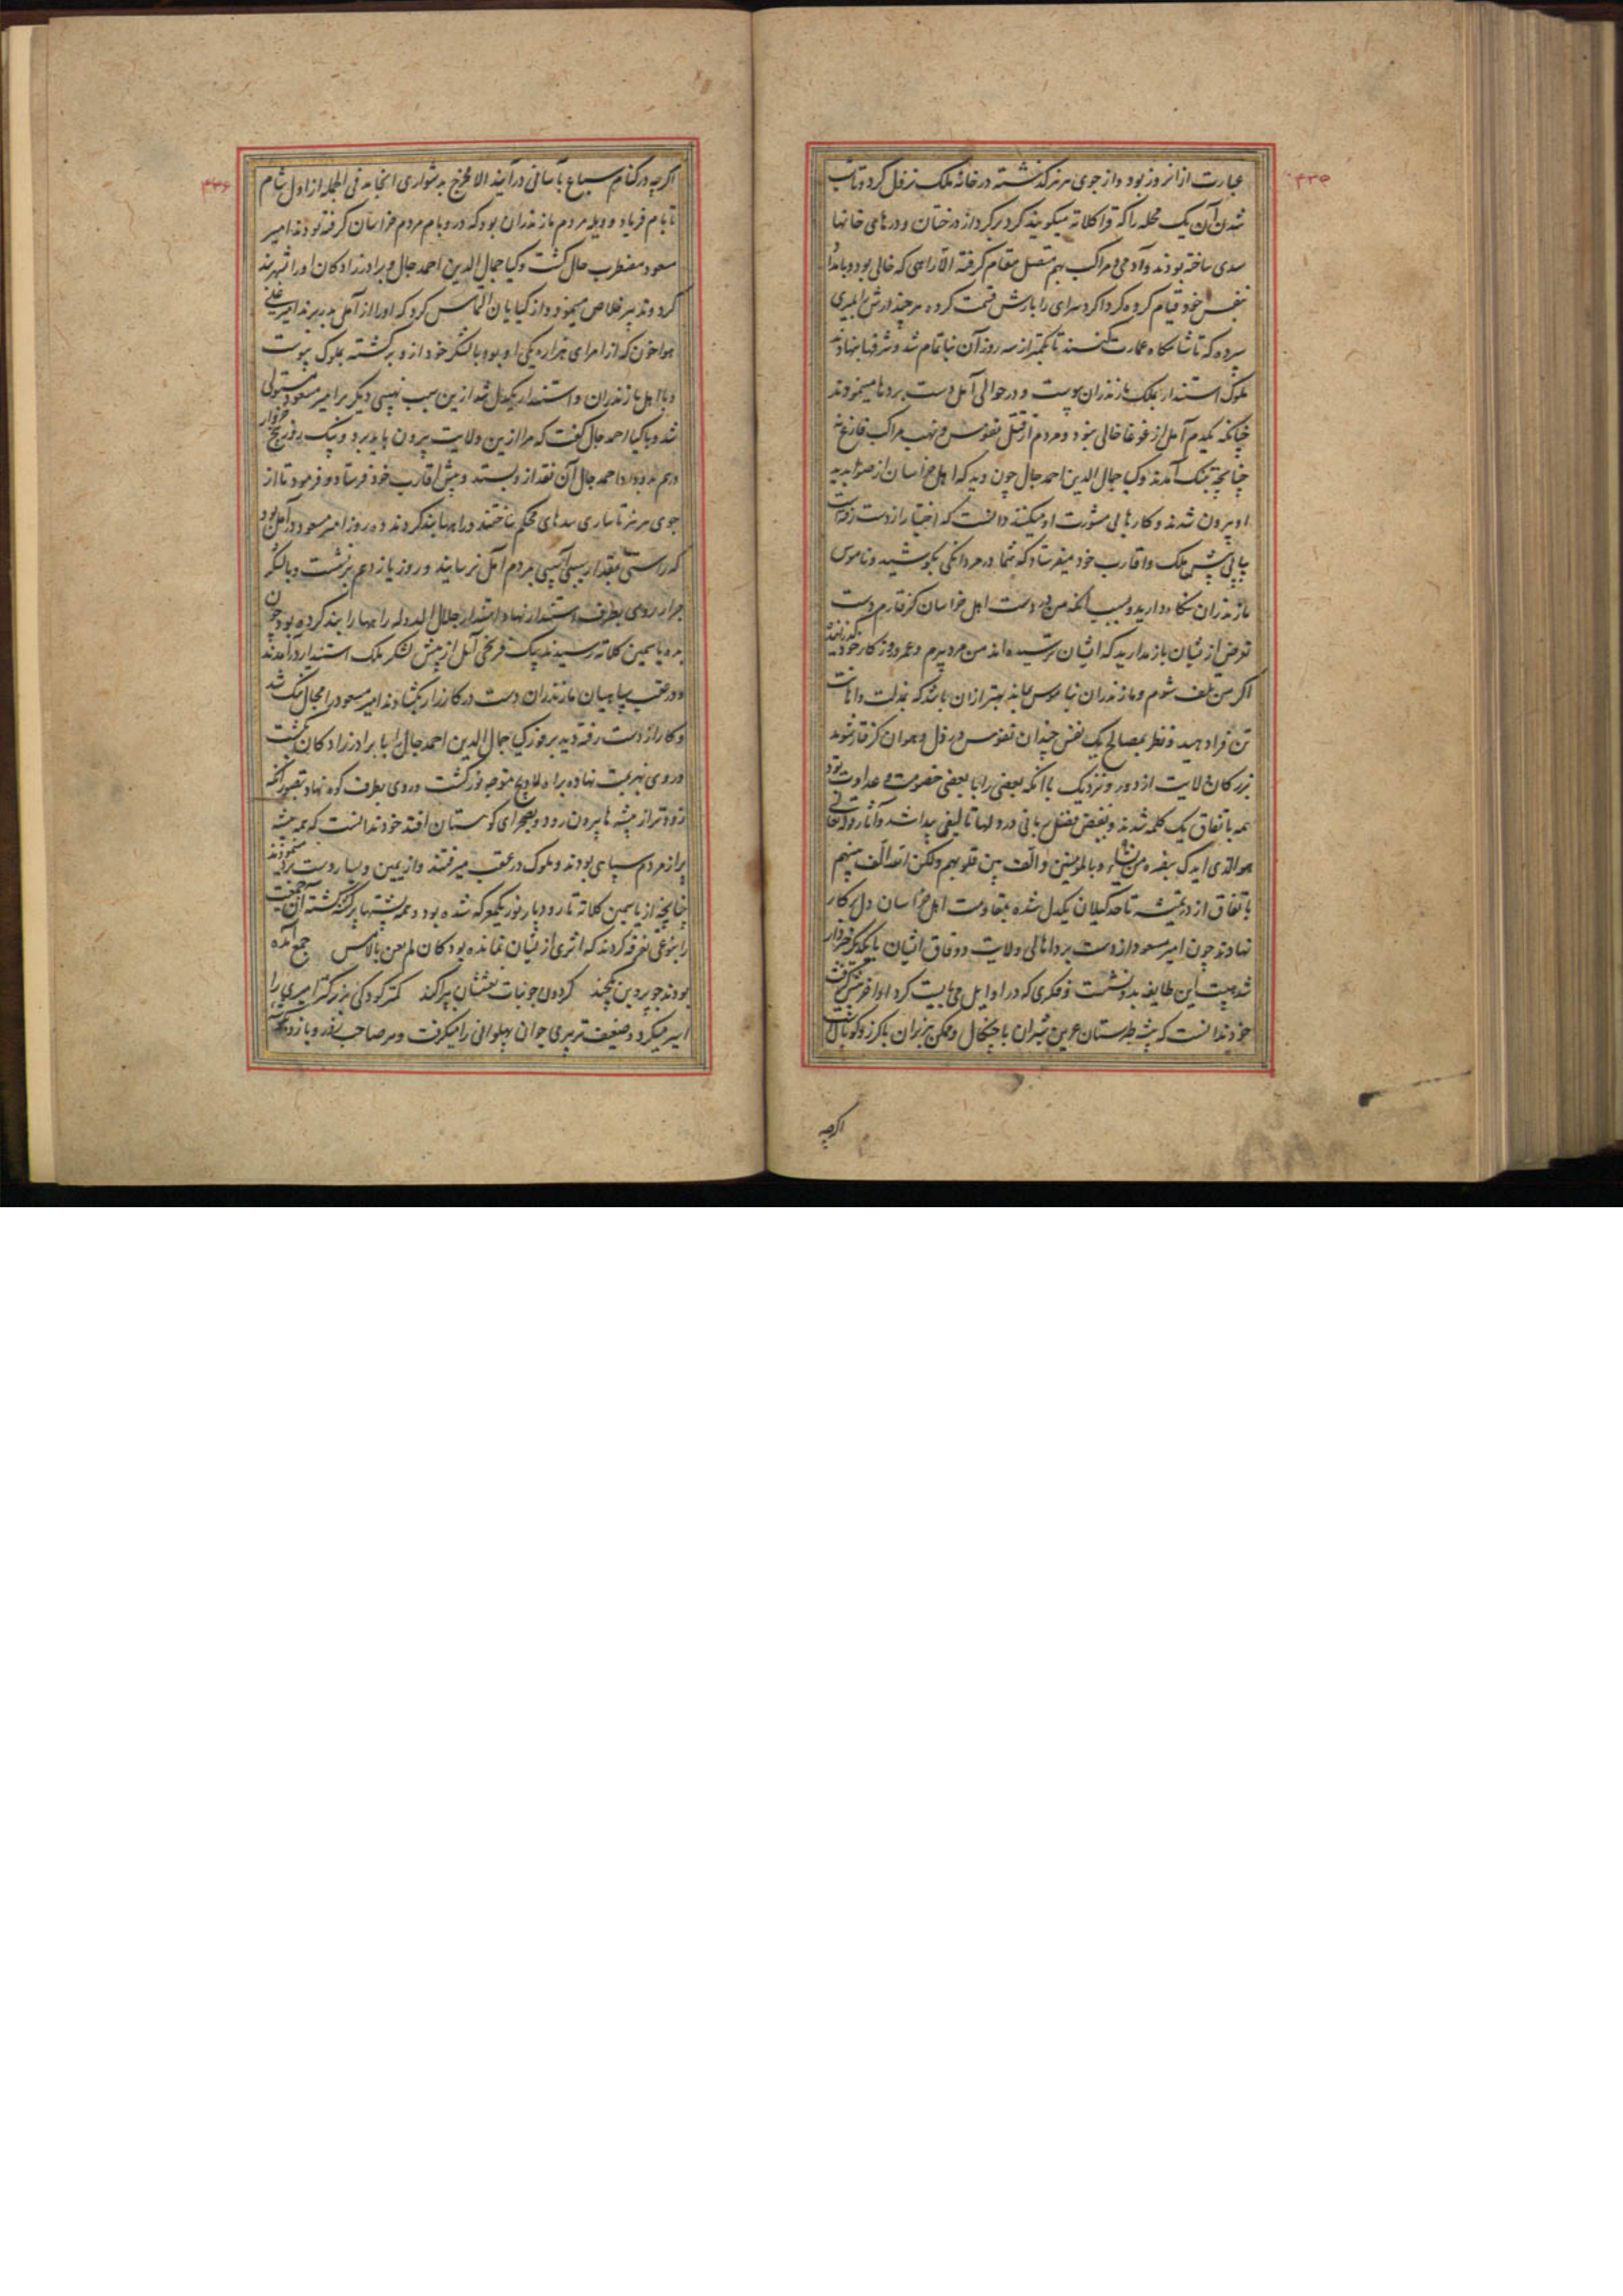 ۴۳۵
عبارت از انروز بود و از جوی هرمز گذشته در خانه ملک نزول کرد و تا شب
شدن آن یک محله را که قراکلاته میگویند گرد بر گرد از درختان و درهای خانها
سدی ساخته بودند و آدمی و مراکب بهم متصل مقام گرفته الا راهی که خالی بود و بامداد
بنفس خود قیام کرده گرداگرد سرای را بارش قسمت کرده هر چند ارش بامیری
سپرده که تا شامگاه عمارت کنند تا کمتر از سه روز آن بنا تمام شد و شرفها بنهادند
ملوک استندار بملک مازندران پیوست و در حوالی آمل دست بردها مینمودند
چنانکه یکدم آمل از غوغا خالی نبود و مردم از قتل نفوس و نهب مراکب فارغ نه
چنانچه بتنگ آمدند و کیا جمال الدین احمد جال چون دید که اهل خراسان از صوابدید
او بیرون شدند و کارها بی مشورت او میکنند دانست که اختیار از دست رفته است
پیاپی پیش ملک و اقارب خود میفرستاد که شما در مردانگی بکوشید و ناموس
مازندران نگاه دارید و بسبب آنکه من در دست اهل خراسان گرفتارم دست
تعرض از ایشان باز مدارید که ایشان ترسیده اند من مرد پیرم و عمر و روزگار خود گذرانیده
اگر من تلف شوم و مازندران بناموس بماند بهتر از آن باشد که بمذلت و اهانت
تن فرا دهید و نظر بمصالح یک نفس چندان نفوس در ذل و هوان گرفتار شوند
بزرگان ولایت از دور و نزدیک با آنکه بعضی را با بعضی خصومت و عداوت بود
همه باتفاق یک کلمه شدند و بفیض فضل ربانی در دلها تالیفی پیدا شد و آثار
هو الذی ایدک بنصره و بالمومنین و الف بین قلوبهم ولکن الله الف بینهم
باتفاق از تمیشه تا حد گیلان یکدل شده بمقاومت اهل خراسان دل بر کار
نهادند چون امیر مسعود از دست برد اهالی ولایت و وفاق ایشان با یکدیگر خبردار
شد هیبت این طایفه بدو نشست و فکری که در اوایل می بایست کرد اواخر پیش گرفت
خود ندانست که بیشه طبرستان عرین شیران با چنگال و مکمن هزبران با گرز و کوپال است
اگرچه
۴۳۶
اگرچه در کنام سباع بآسانی در آیند الا مخرج بدشواری انجامد فی الجمله از اول شام
تا بام فریاد و ویله مردم مازندران بود که در و بام مردم خراسان گرفته بودند امیر
مسعود مضطرب حال گشت و کیا جمال الدین احمد جال و برادرزادگان او را شهربند
کرد و تدبیر خلاص مینمود و از کیایان التماس کرد که او را از آمل بدر برند امیر علی
هواخون که از امرای هزاره یکی او بود با لشکر خود از و برگشته بملوک پیوست
و با اهل مازندران و استندار یکدل شد ازین سبب نهیبی دیگر بر امیر مسعود مستولی
شد و با کیا احمد جال گفت که مرا ازین ولایت بیرون باید برد و بیک روز پنج خروار
درهم بدو داد احمد جال آن نقد از و بستد و پیش اقارب خود فرستاد و فرمود تا از
جوی هرمز تا ساری سدهای محکم ساختند و راهها بند کردند ده روز امیر مسعود در آمل بود
که راستی مقدار سیبی آسیبی بمردم آمل نرسانید و روز یازدهم برنشست و با لشکر
جرار روی بطرف استندار نهاد استندار جلال الدوله راهها را بند کرده بود چون
به ده یاسمین کلاته رسیدند بیک فرسخی آمل از پیش لشکر ملک استندار در آمدند
و در عقب سپاهیان مازندران دست در کارزار بگشادند امیر مسعود را مجال تنگ شد
و کار از دست رفته دید بروز کیا جمال الدین احمد جال را با برادرزادگان بکشت
و روی بهزیمت نهاده براه لاویج متوجه نور گشت و روی بطرف کوه نهاد بتصور آنکه
زودتر از بیشه ها بیرون رود و بصحرای کوهستان افتد خود ندانست که همه بیشه
پر از مردم سپاهی بودند و ملوک در عقب میرفتند و از یمین و یسار دست برد مینمودند
چنانچه از یاسمین کلاته تا رودبار نور یکمعرکه شده بود و همه پشتها پر کشته گشته آن جمعیت
را بنوعی تفرقه کردند که اثری از ایشان نمانده بود کان لم یغن بالامس جمع آمده
بودند چو پروین یکچند گردون چو بنات نعششان بپراکند کمتر کودکی بزرگتر امیری را
اسیر میکرد و ضعیف تر پیری جوان پهلوانی را میگرفت و هر صاحب